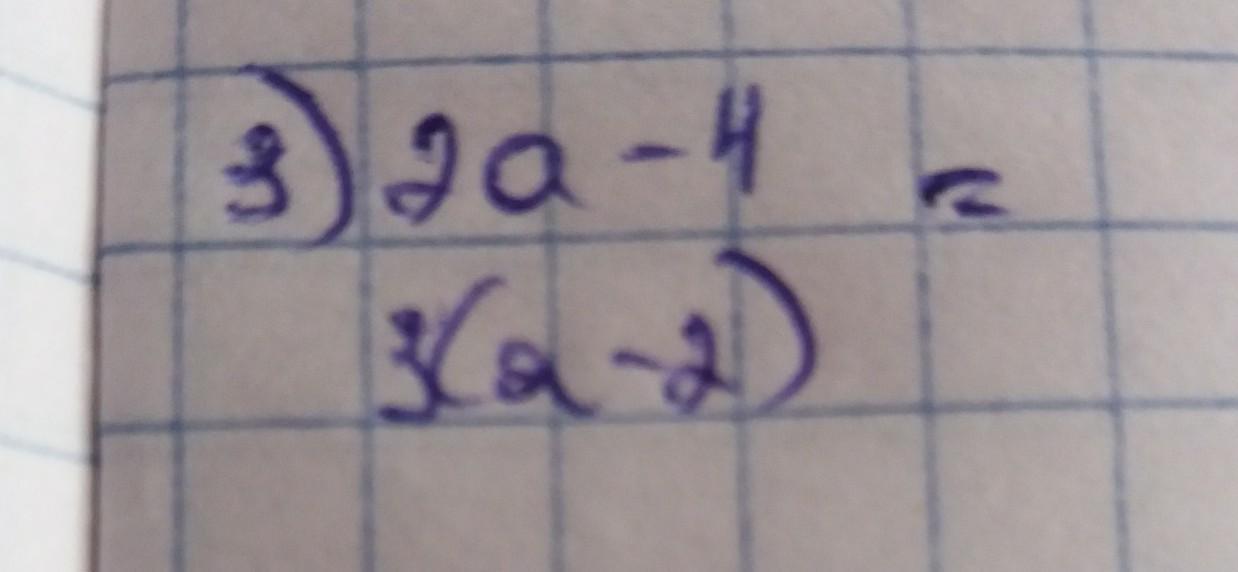 3) 2a - 4 =
3(a - 2)